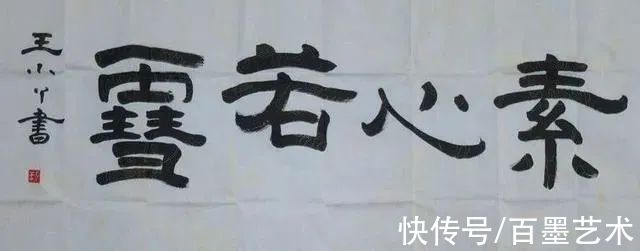 素心若雪
王小丫書
快传号/百墨艺术